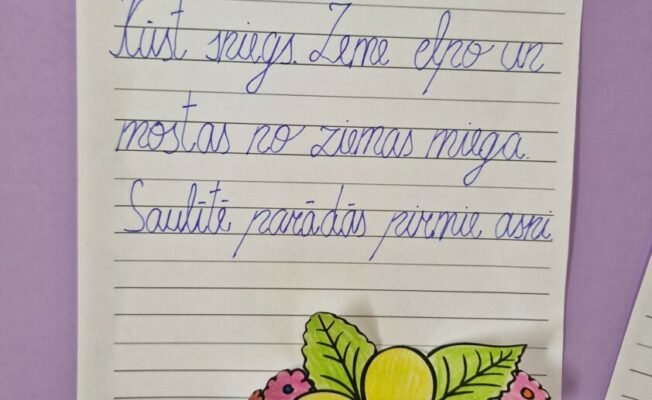 Kūst sniegs. Zeme elpo un
mostas no ziemas miega.
Saulītē parādās pirmie asni